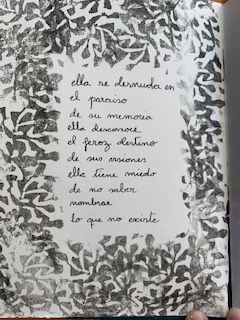 ella se desnuda en
el paraiso
de su memoria
ella desconoce
el feroz destino
de sus visiones
ella tiene miedo
de no saber
nombrar
lo que no existe